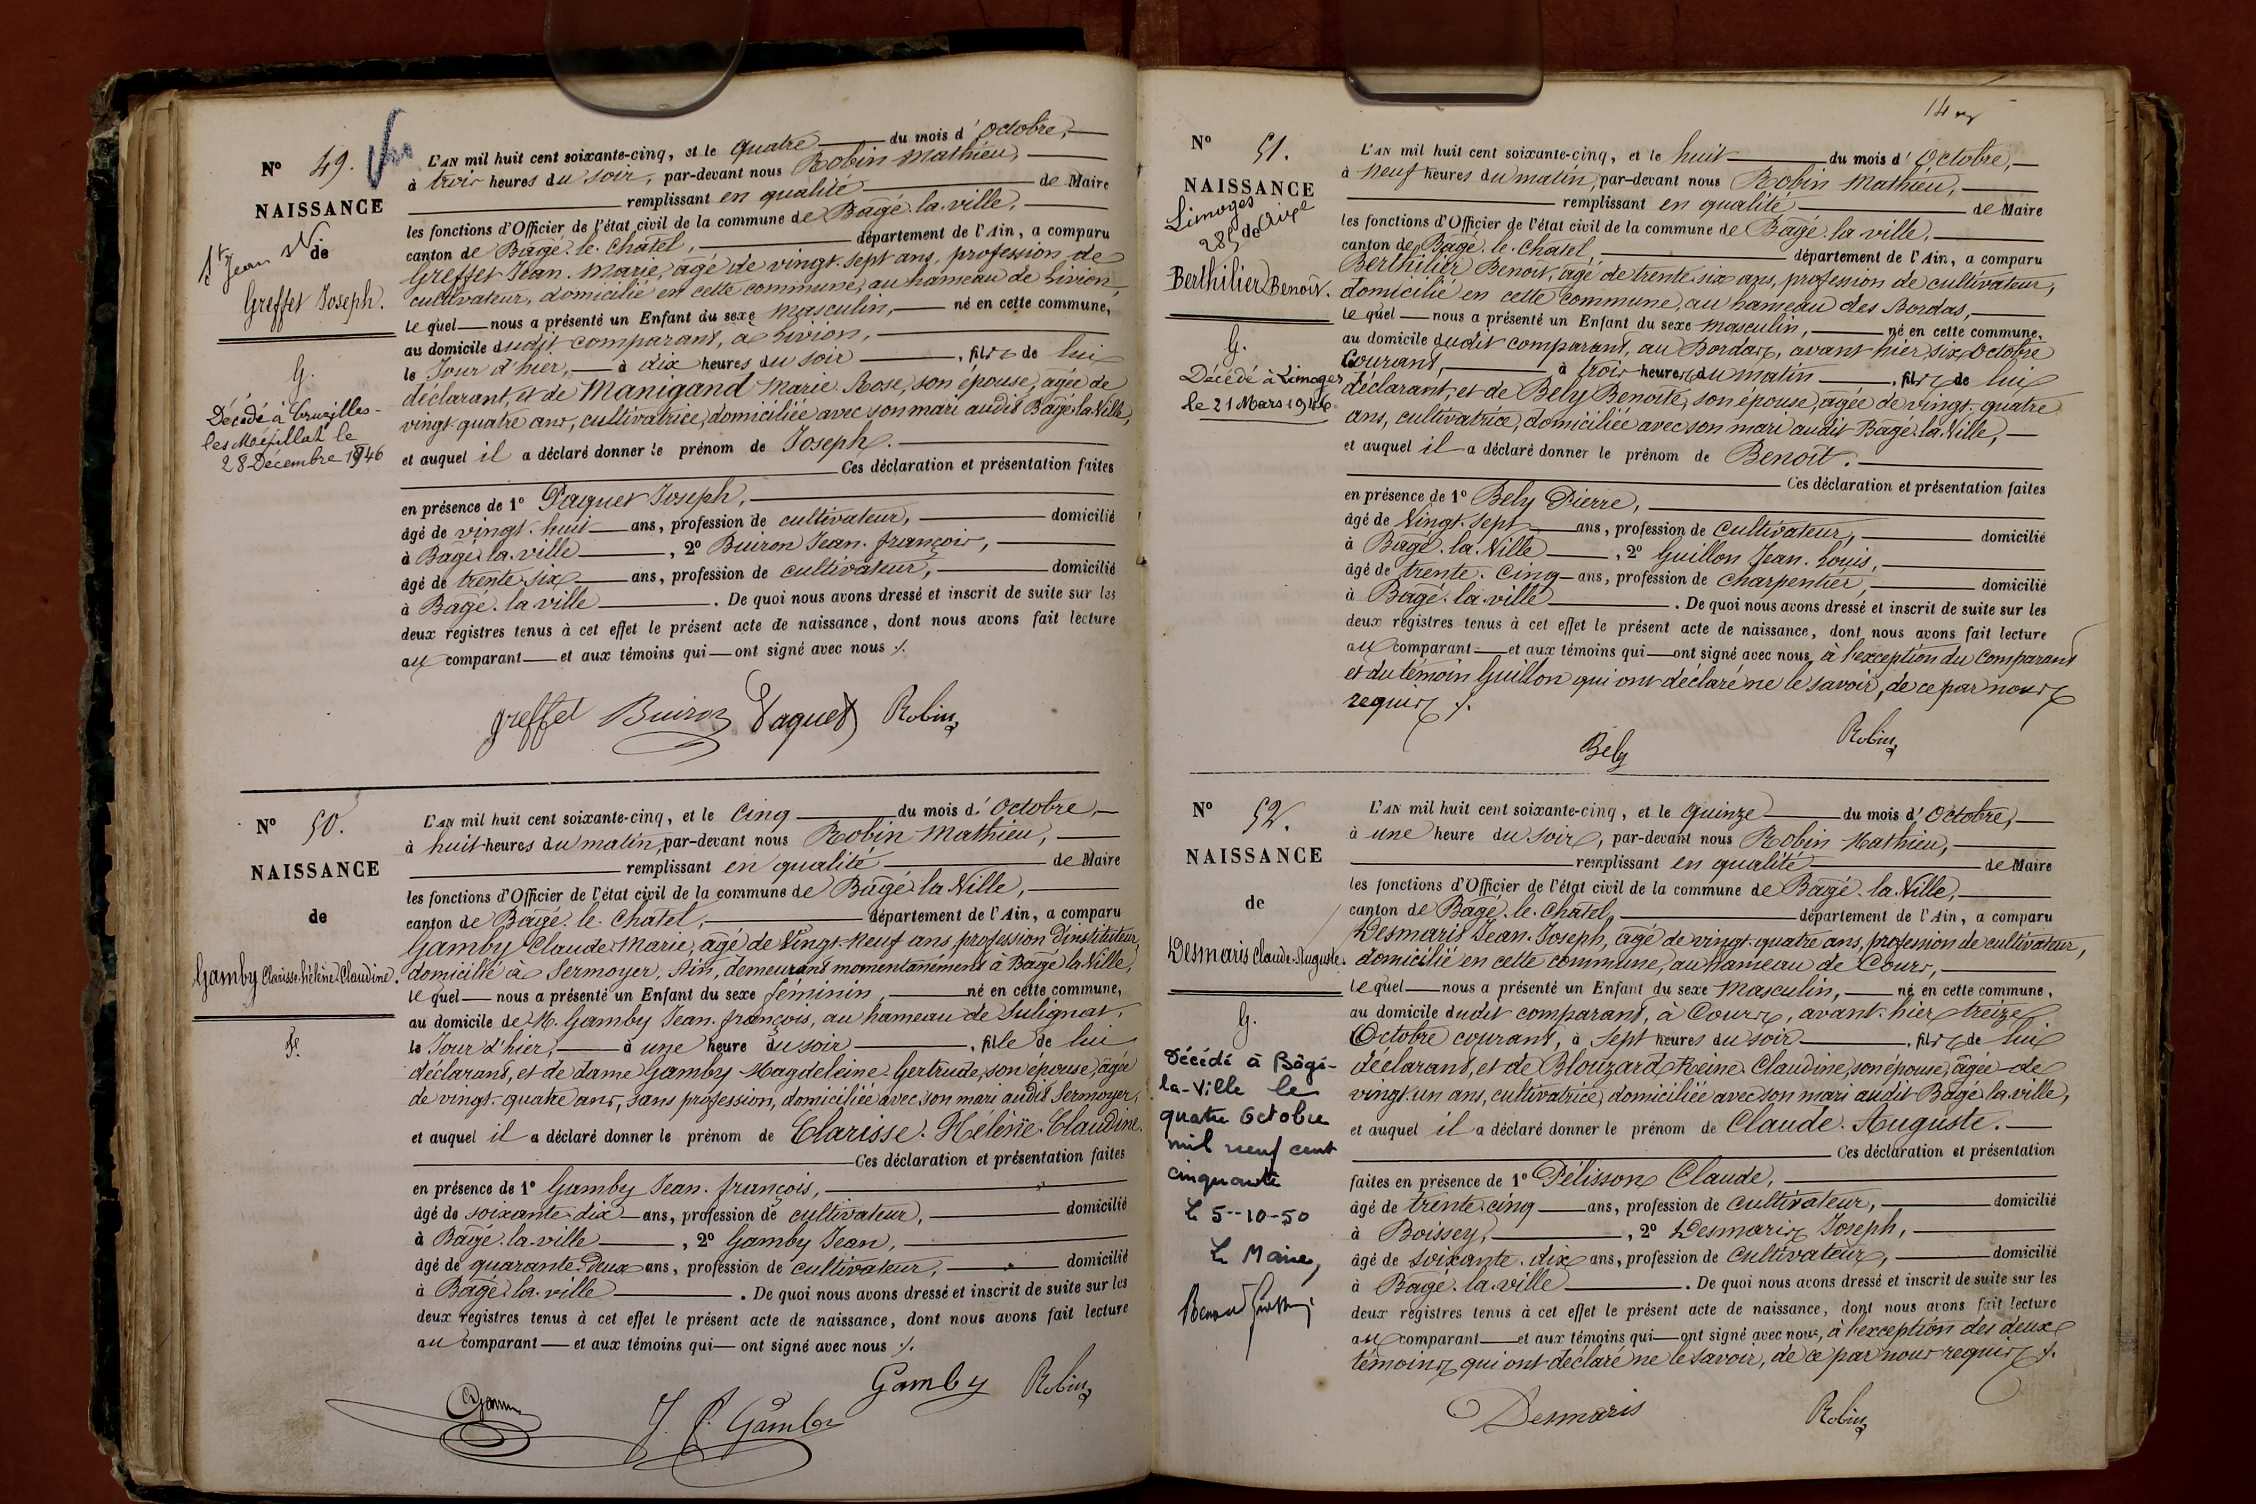 N° 49.
NAISSANCE
de
Greffet Joseph.
G.
Décédé à Cruzilles-
les Mépillat le
28 Décembre 1946
L'AN mil huit cent soixante-cinq, et le quatre du mois d'Octobre,
à trois heures du soir, par-devant nous Robin Mathieu,
remplissant en qualité de Maire
les fonctions d'Officier de l'état civil de la commune de Bâgé-la-ville,
canton de Bâgé-le-Châtel, département de l'Ain, a comparu
Greffet Jean-Marie, âgé de vingt-sept ans, profession de
cultivateur, domicilié en cette commune, au hameau de Livion,
lequel nous a présenté un Enfant du sexe masculin, né en cette commune,
au domicile dudit comparant, à Livion,
le Jour d'hier, à dix heures du soir, fils de lui
déclarant, et de Manigand Marie-Rose, son épouse, âgée de
vingt-quatre ans, cultivatrice, domiciliée avec son mari audit Bâgé-la-Ville,
et auquel il a déclaré donner le prénom de Joseph.
Ces déclaration et présentation faites
en présence de 1° Paquet Joseph,
âgé de vingt-huit ans, profession de cultivateur, domicilié
à Bâgé-la-ville, 2° Buiron Jean-françois,
âgé de trente-six ans, profession de cultivateur, domicilié
à Bâgé-la-ville. De quoi nous avons dressé et inscrit de suite sur les
deux registres tenus à cet effet le présent acte de naissance, dont nous avons fait lecture
au comparant et aux témoins qui ont signé avec nous ./.
greffet Buiron Paquet Robin
N° 50.
NAISSANCE
de
Gamby Clarisse-Hélène-Claudine.
F.
L'AN mil huit cent soixante-cinq, et le Cinq du mois d'Octobre,
à huit heures du matin, par-devant nous Robin Mathieu,
remplissant en qualité de Maire
les fonctions d'Officier de l'état civil de la commune de Bâgé-la-Ville,
canton de Bâgé-le-Châtel, département de l'Ain, a comparu
Gamby Claude-Marie, âgé de Vingt-neuf ans, profession d'instituteur,
domicilié à Sermoyer, Ain, demeurant momentanément à Bâgé-la-Ville,
lequel nous a présenté un Enfant du sexe féminin, né en cette commune,
au domicile de M. Gamby Jean-françois, au hameau de Sulignat,
le Jour d'hier, à une heure du soir, fille de lui
déclarant, et de dame Gamby Magdeleine-Gertrude, son épouse, âgée
de vingt-quatre ans, sans profession, domiciliée avec son mari audit Sermoyer,
et auquel il a déclaré donner le prénom de Clarisse-Hélène-Claudine.
Ces déclaration et présentation faites
en présence de 1° Gamby Jean-françois,
âgé de soixante-dix ans, profession de cultivateur, domicilié
à Bâgé-la-ville, 2° Gamby Jean,
âgé de quarante-deux ans, profession de cultivateur, domicilié
à Bâgé-la-ville. De quoi nous avons dressé et inscrit de suite sur les
deux registres tenus à cet effet le présent acte de naissance, dont nous avons fait lecture
au comparant et aux témoins qui ont signé avec nous ./.
Gamby Robin
J. f. Gamby
N° 51.
NAISSANCE
Limoges
Berthilier Benoît.
G.
Décédé à Limoges
le 21 Mars 1946
L'AN mil huit cent soixante-cinq, et le huit du mois d'Octobre,
à neuf heures du matin, par-devant nous Robin Mathieu,
remplissant en qualité de Maire
les fonctions d'Officier de l'état civil de la commune de Bâgé-la-ville,
canton de Bâgé-le-Châtel, département de l'Ain, a comparu
Berthilier Benoît, âgé de trente-six ans, profession de cultivateur,
domicilié en cette commune, au hameau des Bordas,
lequel nous a présenté un Enfant du sexe masculin, né en cette commune,
au domicile dudit comparant, au Bordax, avant-hier six Octobre
Courant, à trois heures du matin, fils de lui
déclarant, et de Bely Benoîte, son épouse, âgée de vingt-quatre
ans, cultivatrice, domiciliée avec son mari audit Bâgé-la-Ville,
et auquel il a déclaré donner le prénom de Benoît.
Ces déclaration et présentation faites
en présence de 1° Bely Pierre,
âgé de Vingt-sept ans, profession de Cultivateur, domicilié
à Bâgé-la-Ville, 2° Guillon Jean-Louis,
âgé de trente-Cinq ans, profession de Charpentier, domicilié
à Bâgé-la-ville. De quoi nous avons dressé et inscrit de suite sur les
deux registres tenus à cet effet le présent acte de naissance, dont nous avons fait lecture
au comparant et aux témoins qui ont signé avec nous, à l'exception du Comparant
et du témoin Guillon qui ont déclaré ne le savoir, de ce par nous
requis ./.
Bely Robin
N° 52.
NAISSANCE
de
Desmaris Claude-Auguste.
G.
Décédé à Bâgé-
la-Ville le
quatre Octobre
mil neuf cent
cinquante
Le 5-10-50
Le Maire,
L'AN mil huit cent soixante-cinq, et le quinze du mois d'Octobre,
à une heure du soir, par-devant nous Robin Mathieu,
remplissant en qualité de Maire
les fonctions d'Officier de l'état civil de la commune de Bâgé-la-Ville,
canton de Bâgé-le-Châtel, département de l'Ain, a comparu
Desmaris Jean-Joseph, âgé de vingt-quatre ans, profession de cultivateur,
domicilié en cette commune, au hameau de Cours,
lequel nous a présenté un Enfant du sexe Masculin, né en cette commune,
au domicile dudit comparant, à Cours, avant-hier treize
Octobre courant, à sept heures du soir, fils de lui
déclarant, et de Blouzard Reine-Claudine, son épouse, âgée de
vingt-un ans, cultivatrice, domiciliée avec son mari audit Bâgé-la-ville,
et auquel il a déclaré donner le prénom de Claude-Auguste.
Ces déclaration et présentation
faites en présence de 1° Pélisson Claude,
âgé de trente-cinq ans, profession de Cultivateur, domicilié
à Boissey, 2° Desmaris Joseph,
âgé de soixante-dix ans, profession de Cultivateur, domicilié
à Bâgé-la-ville. De quoi nous avons dressé et inscrit de suite sur les
deux registres tenus à cet effet le présent acte de naissance, dont nous avons fait lecture
au comparant et aux témoins qui ont signé avec nous, à l'exception des deux
témoins qui ont déclaré ne le savoir, de ce par nous requis ./.
Desmaris Robin